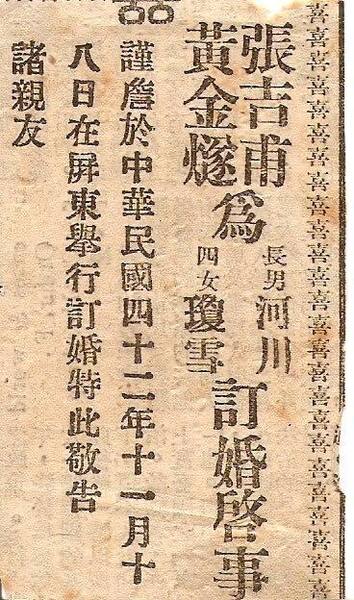 喜喜喜喜喜喜喜喜喜喜喜喜喜喜喜喜喜喜喜喜喜喜喜喜喜喜喜喜
張吉甫
黃金燧
為
長男河川
四女瓊雪
訂婚啓事
謹詹於中華民國四十二年十一月十
八日在屏東舉行訂婚特此敬告
諸親友
囍